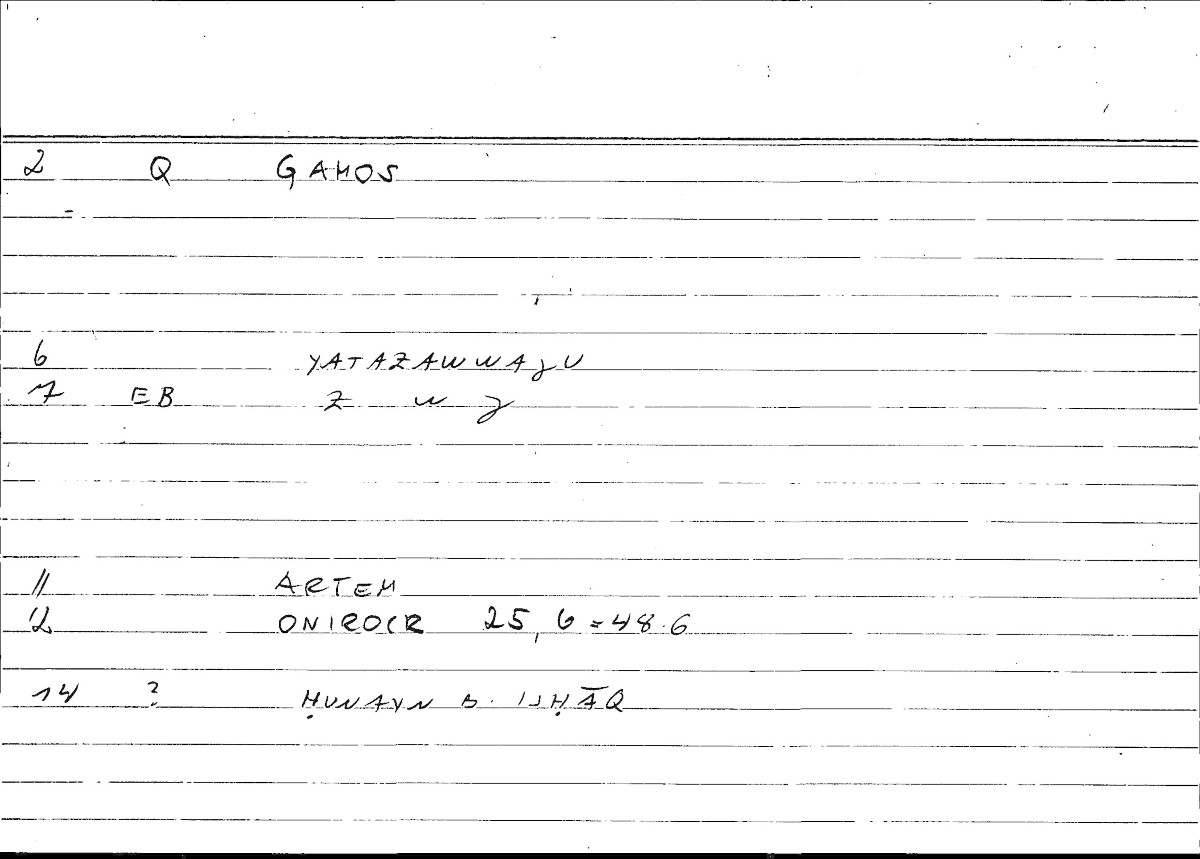 2 Q GAMOS
6 YATAZAWWAJU
7 EB Z W J
11 ARTEM
12 ONIROCR 25, 6 = 48.6
14 ? ḤUNAYN B. ISḤĀQ